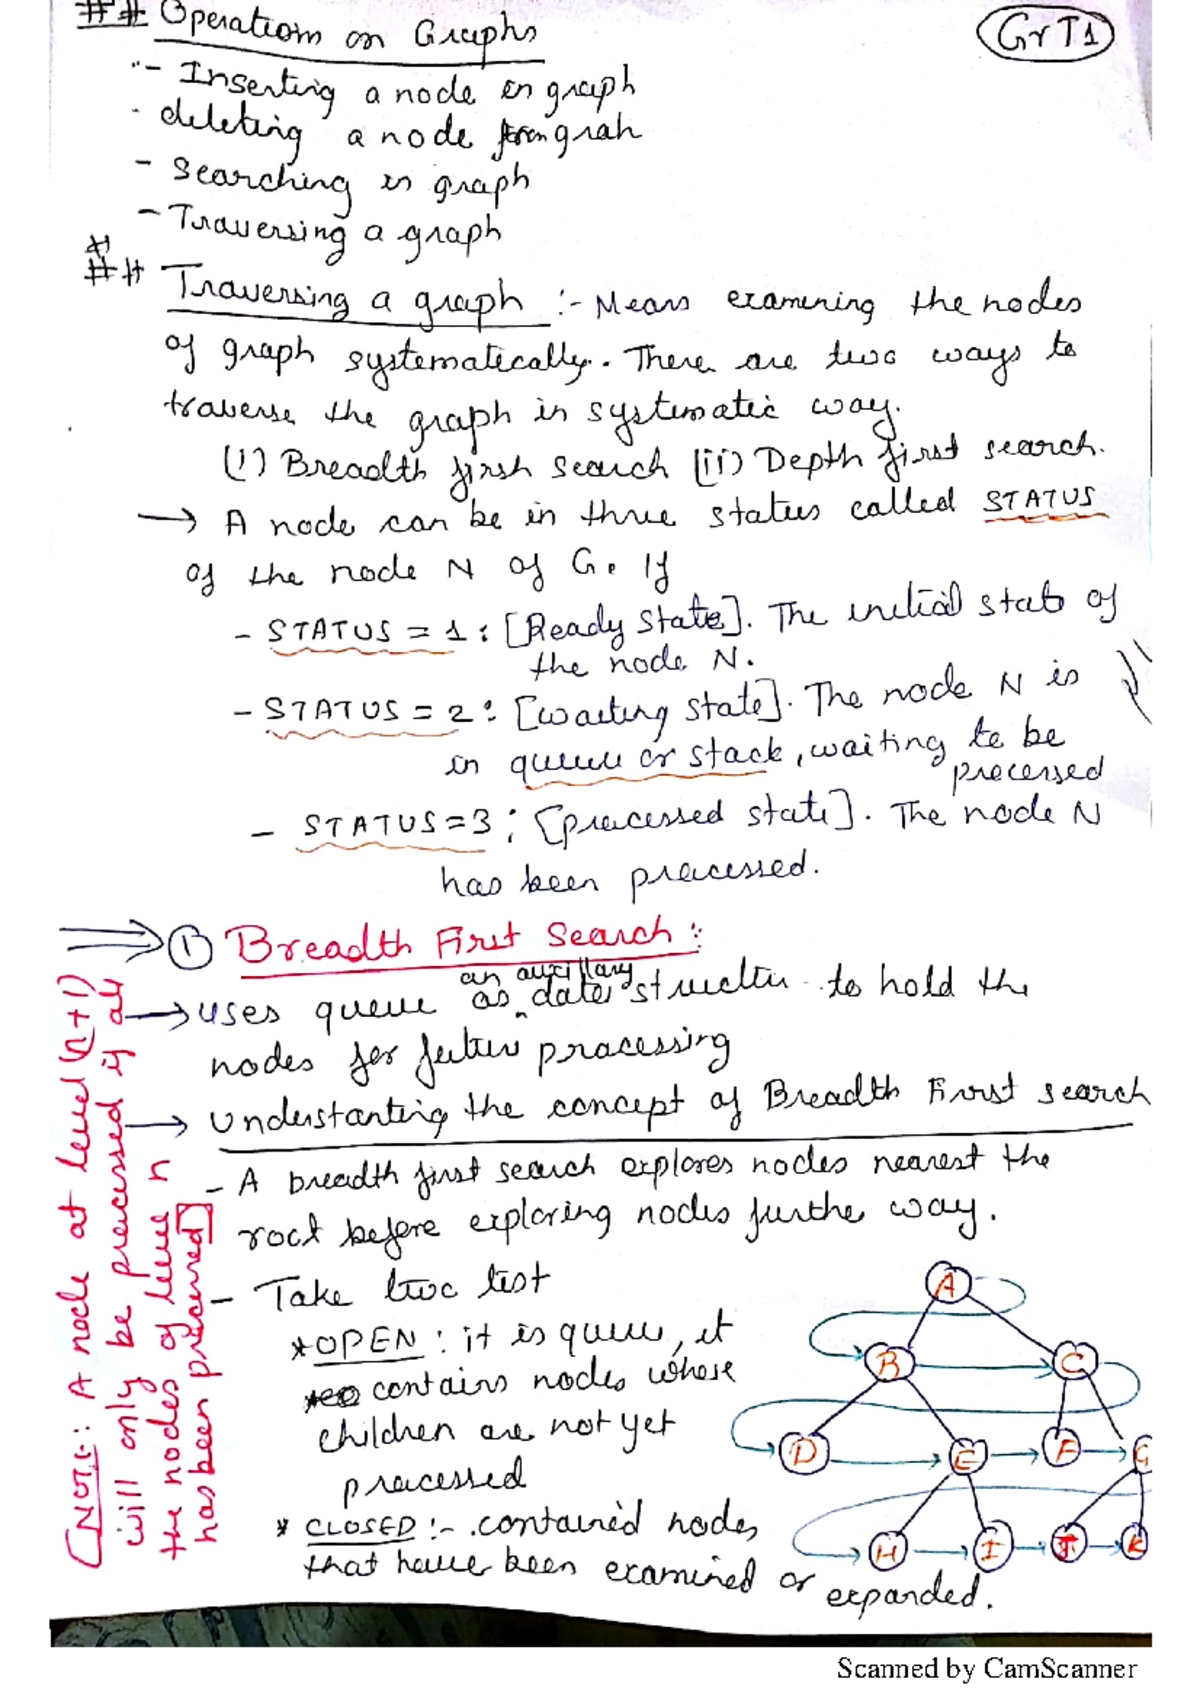 ## Operations on Graphs
GrT1
- Inserting a node in graph
- deleting a node from grah
- Searching in graph
- Traversing a graph
### Traversing a graph :- Means examining the nodes
of graph systematically. There are two ways to
traverse the graph in systematic way.
(i) Breadth first search (ii) Depth first search.
→ A node can be in three status called STATUS
of the node N of G. If
- STATUS = 1 : [Ready State]. The initial state of
the node N.
- STATUS = 2 : [waiting state]. The node N is
in queue or stack, waiting to be
processed
- STATUS = 3 ; [processed state]. The node N
has been processed.
① Breadth First Search :
→ uses queue as an auxillary data structure to hold the
nodes for future processing
→ Understanting the concept of Breadth First search
- A breadth first search explores nodes nearest the
root before exploring nodes furthe way.
- Take two list
* OPEN : it is queue, it
contains nodes whose
children are not yet
processed
* CLOSED :- contained nodes
that have been examined or expanded.
[NOTE: A node at level (n+1)
will only be processed if all
the nodes of level n
has been processed]
A
B C
D E F G
H I J K
Scanned by CamScanner